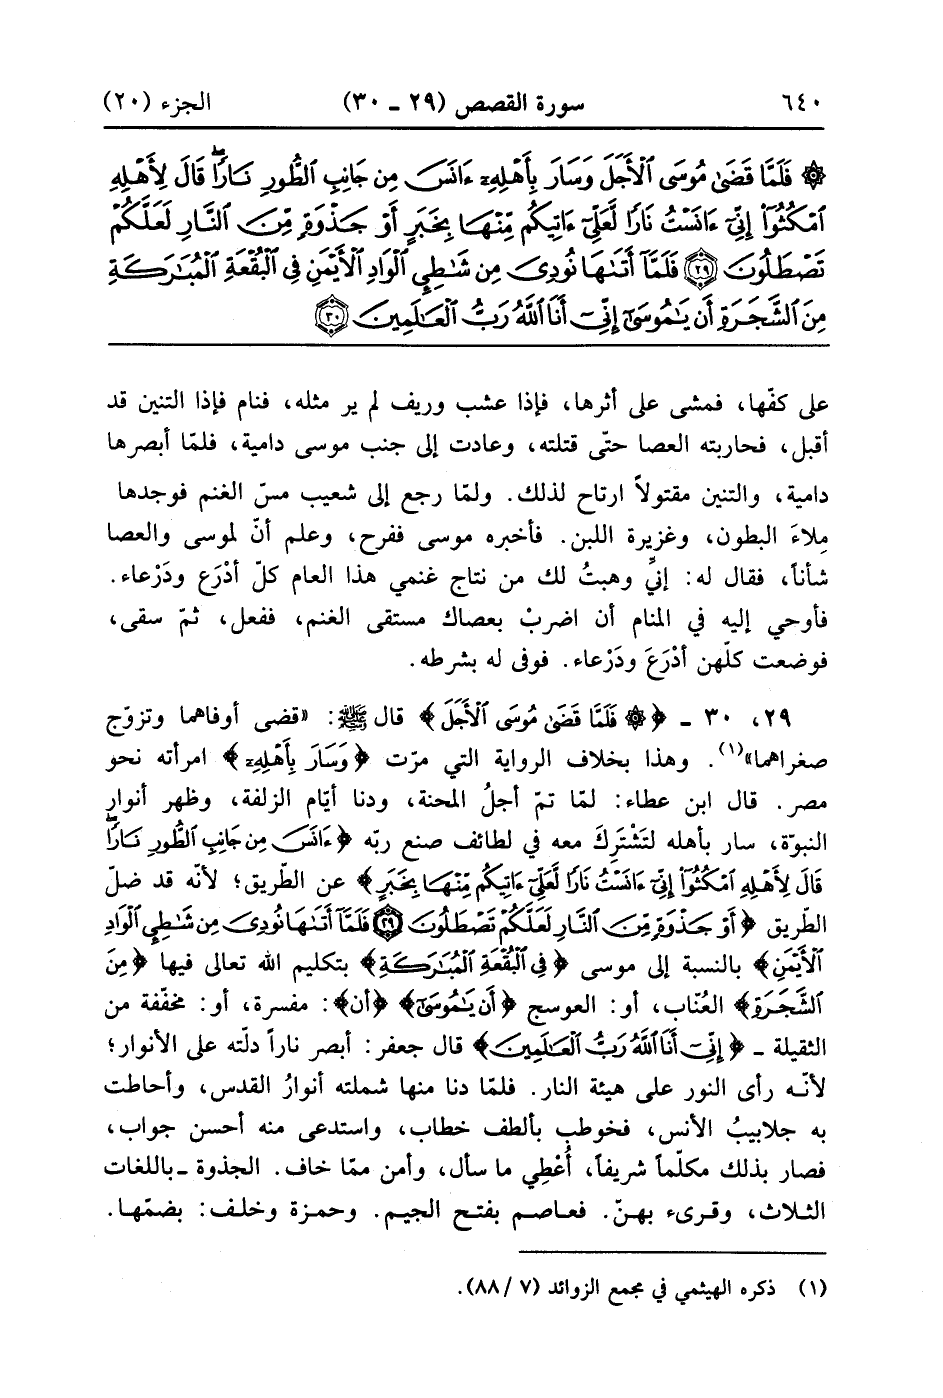 ٦٤٠ سورة القصص (٢٩ - ٣٠) الجزء (٢٠)
۞ فَلَمَّا قَضَىٰ مُوسَى ٱلْأَجَلَ وَسَارَ بِأَهْلِهِۦٓ ءَانَسَ مِن جَانِبِ ٱلطُّورِ نَارًاۖ قَالَ لِأَهْلِهِ
ٱمْكُثُوٓا۟ إِنِّىٓ ءَانَسْتُ نَارًا لَّعَلِّىٓ ءَاتِيكُم مِّنْهَا بِخَبَرٍ أَوْ جَذْوَةٍ مِّنَ ٱلنَّارِ لَعَلَّكُمْ
تَصْطَلُونَ ٢٩ فَلَمَّآ أَتَىٰهَا نُودِىَ مِن شَٰطِئِ ٱلْوَادِ ٱلْأَيْمَنِ فِى ٱلْبُقْعَةِ ٱلْمُبَٰرَكَةِ
مِنَ ٱلشَّجَرَةِ أَن يَٰمُوسَىٰٓ إِنِّىٓ أَنَا ٱللَّهُ رَبُّ ٱلْعَٰلَمِينَ ٣٠
على كفّها، فمشى على أثرها، فإذا عشب وريف لم ير مثله، فنام فإذا التنين قد
أقبل، فحاربته العصا حتّى قتلته، وعادت إلى جنب موسى دامية، فلمّا أبصرها
دامية، والتنين مقتولاً ارتاح لذلك. ولمّا رجع إلى شعيب مسّ الغنم فوجدها
مِلاءَ البطون، وغزيرة اللبن. فأخبره موسى ففرح، وعلم أنّ لموسى والعصا
شأناً، فقال له: إنّي وهبتُ لك من نتاج غنمي هذا العام كلّ أدْرَع ودَرْعاء.
فأوحي إليه في المنام أن اضربْ بعصاك مستقى الغنم، ففعل، ثمّ سقى،
فوضعت كلّهن أدْرَعَ ودَرْعاء. فوفى له بشرطه.
٢٩، ٣٠ - ﴿۞ فَلَمَّا قَضَىٰ مُوسَى ٱلْأَجَلَ﴾ قال ﷺ: «قضى أوفاهما وتزوّج
صغراهما»(١). وهذا بخلاف الرواية التي مرّت ﴿وَسَارَ بِأَهْلِهِۦٓ﴾ امرأته نحو
مصر. قال ابن عطاء: لمّا تمّ أجلُ المحنة، ودنا أيّام الزلفة، وظهر أنوار
النبوّة، سار بأهله لتَشْتَرِكَ معه في لطائف صنع ربّه ﴿ءَانَسَ مِن جَانِبِ ٱلطُّورِ نَارًاۖ
قَالَ لِأَهْلِهِ ٱمْكُثُوٓا۟ إِنِّىٓ ءَانَسْتُ نَارًا لَّعَلِّىٓ ءَاتِيكُم مِّنْهَا بِخَبَرٍ﴾ عن الطّريق؛ لأنّه قد ضلّ
الطّريق ﴿أَوْ جَذْوَةٍ مِّنَ ٱلنَّارِ لَعَلَّكُمْ تَصْطَلُونَ ٢٩ فَلَمَّآ أَتَىٰهَا نُودِىَ مِن شَٰطِئِ ٱلْوَادِ
ٱلْأَيْمَنِ﴾ بالنسبة إلى موسى ﴿فِى ٱلْبُقْعَةِ ٱلْمُبَٰرَكَةِ﴾ بتكليم الله تعالى فيها ﴿مِنَ
ٱلشَّجَرَةِ﴾ العُنّاب، أو: العوسج ﴿أَن يَٰمُوسَىٰٓ﴾ ﴿أن﴾: مفسرة، أو: مخفّفة من
الثقيلة - ﴿إِنِّىٓ أَنَا ٱللَّهُ رَبُّ ٱلْعَٰلَمِينَ﴾ قال جعفر: أبصر ناراً دلّته على الأنوار؛
لأنّه رأى النور على هيئة النار. فلمّا دنا منها شملته أنوارُ القدس، وأحاطت
به جلابيبُ الأنس، فخوطب بألطف خطاب، واستدعى منه أحسن جواب،
فصار بذلك مكلّماً شريفاً، أُعْطِي ما سأل، وأمن ممّا خاف. الجذوة -باللغات
الثلاث، وقرىء بهنّ. فعاصم بفتح الجيم. وحمزة وخلف: بضمّها.
(١) ذكره الهيثمي في مجمع الزوائد (٧/ ٨٨).